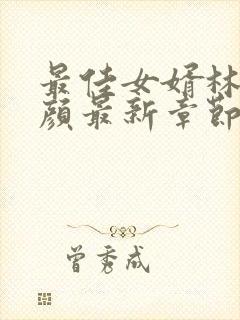 最佳女婿林
颜最新章节
曾秀成